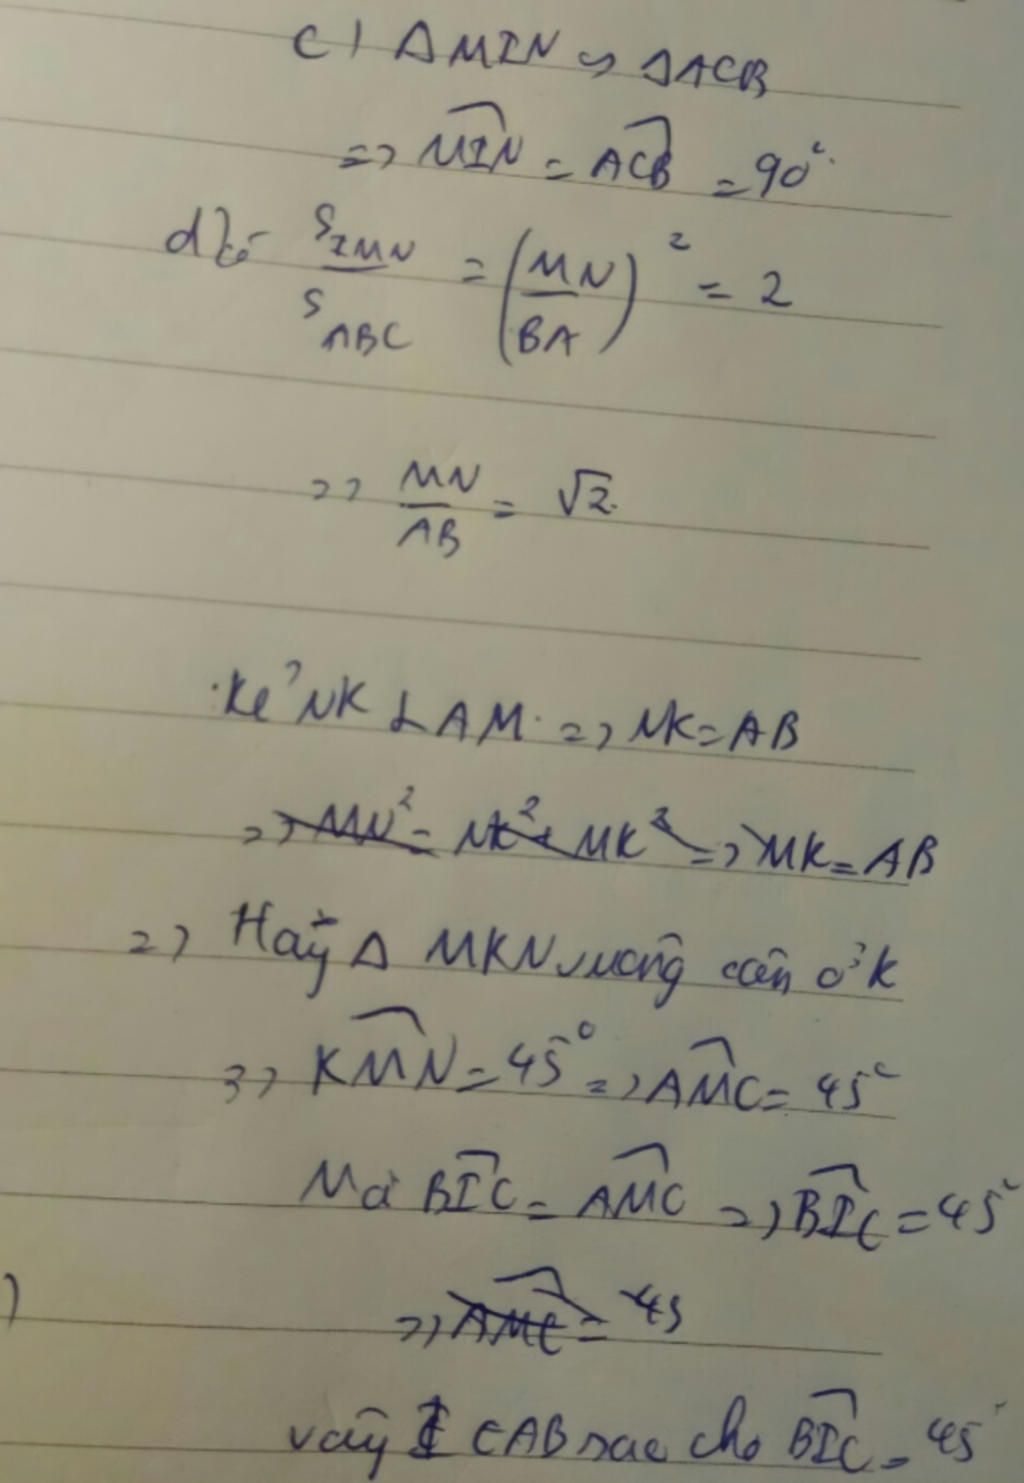 c) ΔMIN ∽ ΔACB
=> \widehat{MIN} = \widehat{ACB} = 90°
d) Có \frac{S_{IMN}}{S_{ABC}} = \left(\frac{MN}{BA}\right)^2 = 2
=> \frac{MN}{AB} = √2.
Kẻ NK ⊥ AM => NK = AB
=> MN² = NK² + MK² => MK = AB
=> Hay Δ MKN vuông cân ở K
=> \widehat{KMN} = 45° => \widehat{AMC} = 45°
Mà \widehat{BIC} = \widehat{AMC} => \widehat{BIC} = 45°
=> \widehat{AMC} = 45
)
vậy I ∈ AB sao cho \widehat{BIC} = 45°